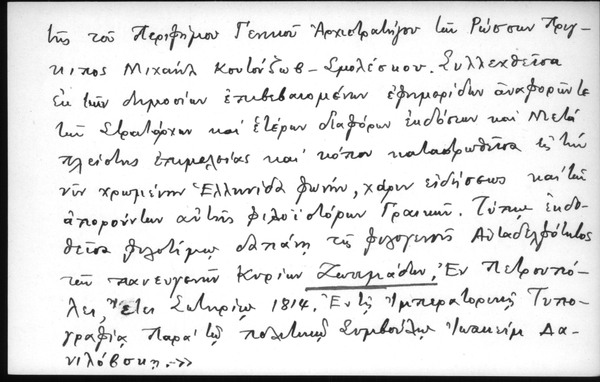 τῆς τοῦ Περιφήμου Γενικοῦ Ἀρχιστρατήγου τῶν Ρώσσων Πριγ-
κιπος Μιχαήλ Κουτούζωβ-Σμολέσκου. Συλλεχθεῖσα
ἐκ τῶν δημοσίων ἐπιβεβαιομένων ἐφημερίδων ἀναφορῶν τε
τῶν Στρατάρχων καί ἑτέρων διαφόρων ἐκδόσεων καί Μετά
πλείστης ἐπιμελείας καί κόπου καταστρωθεῖσα εἰς τήν
νῦν χρωμένην Ἑλληνίδα φωνήν, χάριν εἰδήσεως καί τῶν
ἀπορούντων αὐτῆς φιλοϊστόρων Γραικῶν. Τύποις ἐκδο-
θεῖσα φιλοτίμῳ δαπάνῃ τῆς φιλογενοῦς Αὐταδελφότητος
τῶν πανευγενῶν Κυρίων Ζωσιμάδων, Ἐν Πετρουπό-
λει, Ἔτει Σωτηρίῳ 1814. Ἐν τῇ Ἰμπερατορικῇ Τυπο-
γραφίᾳ Παρά τῷ πολιτικῷ Συμβούλῳ Ἰωακείμ Δα-
νιλόβσκῃ.»